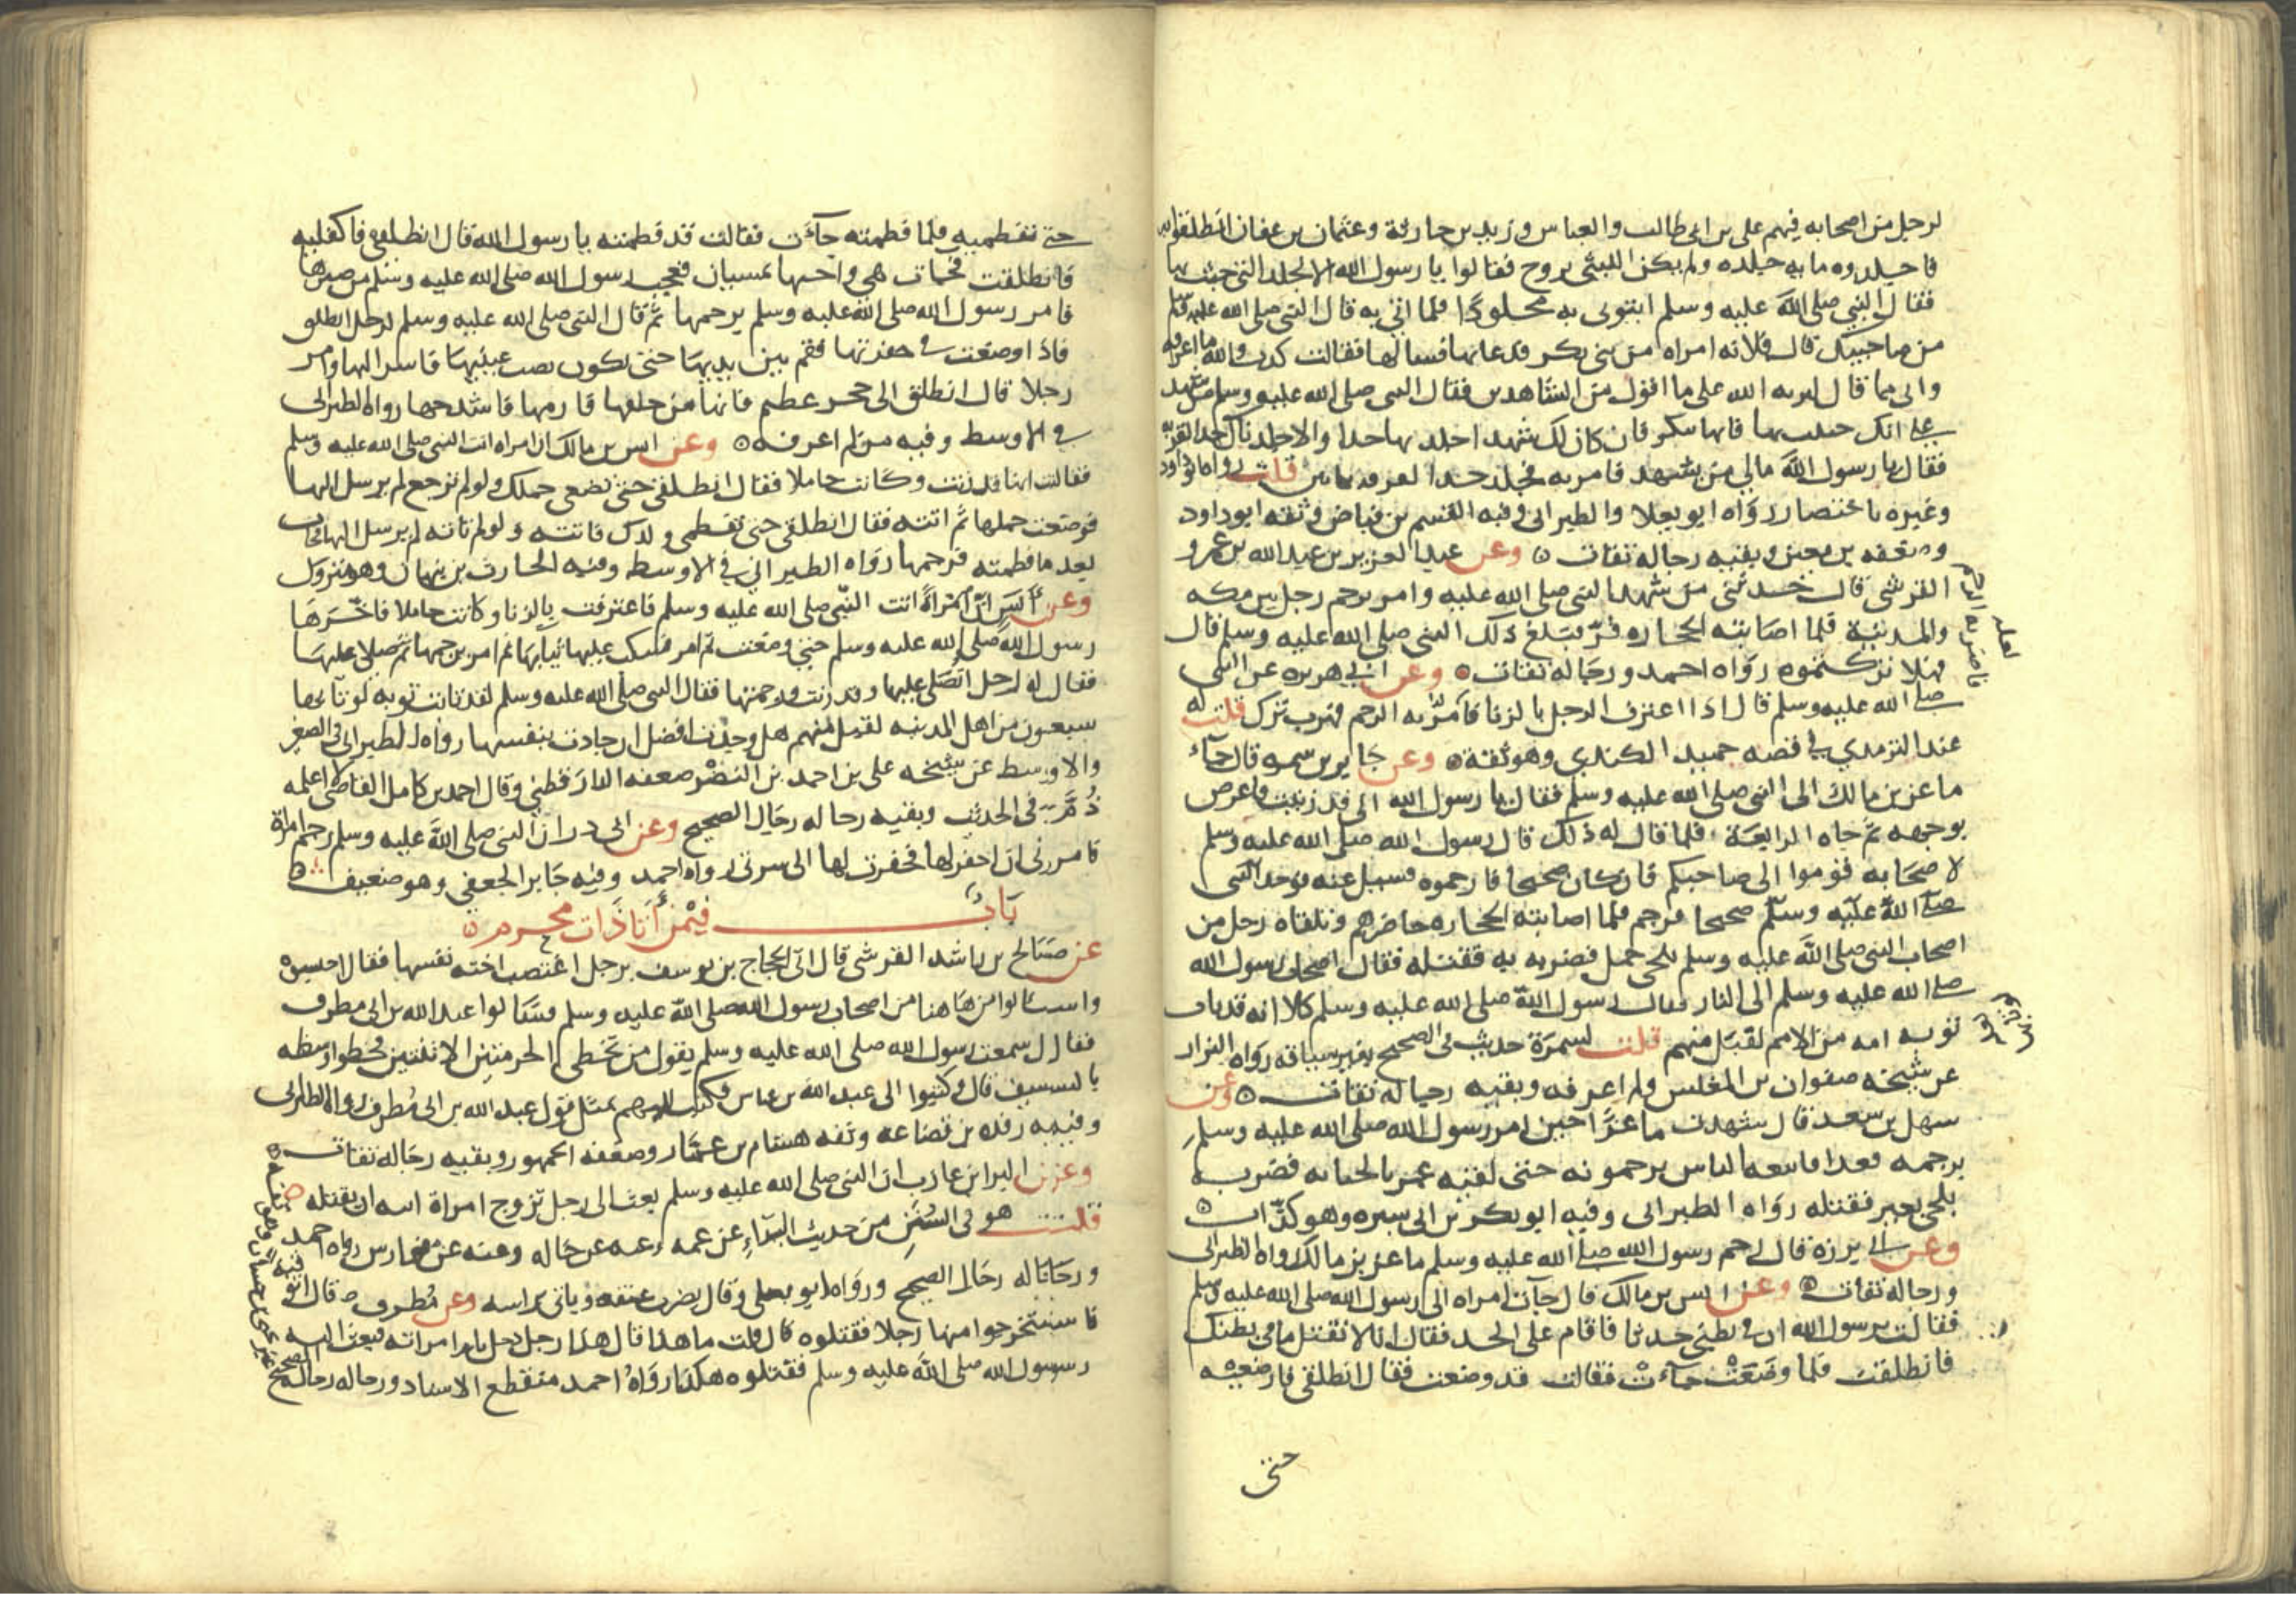 لرجل من اصحابه فيهم على بن ابى طالب والعباس وزيد بن حارثة وعثمان بن عفان انطلقوا
فاجلدوه مايه جلده ولم يكن الليثى تزوج فقالوا يا رسول الله الا تجلد التى خبث بها
فقال النبي صلى الله عليه وسلم ايتونى به مجلودا فلما اتي به قال النبى صلى الله عليه وسلم
من صاحبتك قال فلانه امراه من بنى بكر فدعا بها فسالها فقالت كذب والله ما اعرفه
وانى مما قال لبريه الله على ما اقول من الشاهدين فقال النبى صلى الله عليه وسلم من شهد
على انك خبثت بها فانها تنكر فان كان لك شهدا اجلدتها حدا والا جلدناك حد الفريه
فقال يا رسول الله مالي من يشهد فامر به فجلد حد الفريه ثمانين قلت رواه ابو داود
وغيره باختصار رواه ابو يعلا والطبرانى وفيه القسم بن فياض وثقه ابو داود
وضعفه بن معين وبقيه رجاله ثقات ٥ وعن عبد العزيز بن عبد الله بن عمرو
القرشى قال حدثنى من شهد النبى صلى الله عليه وامر برجم رجل بين مكه
والمدينة فلما اصابته الحجاره فر فبلغ ذلك النبى صلى الله عليه وسلم قال
فهلا تركتموه رواه احمد ورجاله ثقات ٥ وعن ابي هريره عن النبى
صلى الله عليه وسلم قال اذا اعترف الرجل بالزنا فامر به الرجم فهرب ترك قلت له
عند الترمذي في قصه حميد الكندي وهو ثقة ٥ وعن جابر بن سمره قال جاء
ماعز بن مالك الى النبى صلى الله عليه وسلم فقال يا رسول الله انى قد زنيت فاعرض
بوجهه ثم جاه الرابعة فلما قال له ذلك قال رسول الله صلى الله عليه وسلم
لاصحابه قوموا الى صاحبكم فان كان صحيحا فارجموه فسيل عنه فوجد النبى
صلى الله عليه وسلم صحيحا فرجم فلما اصابته الحجاره حاضرهم وتلقاه رجل من
اصحاب النبى صلى الله عليه وسلم بلحى جمل فضربه به فقتله فقال اصحاب رسول الله
صلى الله عليه وسلم الى النار فقال رسول الله صلى الله عليه وسلم كلا انه قد تاب
توبه امه من الامم لقبل منهم قلت لسمرة حديث فى الصحيح بغير سياقه رواه البزار
عن شيخه صفوان بن المغلس ولم اعرفه وبقيه رجاله ثقات ٥ وعن
سهل بن سعد قال شهدت ماعزا حين امر رسول الله صلى الله عليه وسلم
برجمه فعدا فاتبعه الناس يرجمونه حتى لقيه عمر بالجبانه فضربه
بلحى بعير فقتله رواه الطبرانى وفيه ابو بكر بن ابى سبره وهو كذاب ٥
وعن ابي برزه قال رجم رسول الله صلى الله عليه وسلم ماعز بن مالك رواه الطبرانى
ورجاله ثقات ٥ وعن انس بن مالك قال جآت امراه الى رسول الله صلى الله عليه وسلم
فقالت يرسول الله ان في بطنى حدثا فاقام على الحد فقال انا لا نقتل ما في بطنك
فانطلقت فلما وضعت جآءت فقالت قد وضعت فقال انطلقى فارضعيه
حتى
لعله
حتى تفطميه فلما فطمته جآءت فقالت قد فطمته يا رسول الله قال انطلقى فاكفليه
فانطلقت فجات هي واختها تمسيان فعجب رسول الله صلى الله عليه وسلم من صبرها
فامر رسول الله صلى الله عليه وسلم برجمها ثم قال النبى صلى الله عليه وسلم لرجل انطلق
فاذا وضعت في حفرتها فقم بين يديها حتى تكون نصب عينيها فاسر اليها وامر
رجلا قال انطلق الى حجر عظيم فاتها من خلفها فارمها فاشدخها رواه الطبرانى
في الاوسط وفيه من لم اعرفه ٥ وعن انس بن مالك ان امراه اتت النبى صلى الله عليه وسلم
فقالت انها قد زنت وكانت حاملا فقال انطلقى حتى تضعى حملك ولو لم ترجع لم يرسل اليها
فوضعت حملها ثم اتته فقال انطلقى حتى تفطمى ولدك فاتته ولو لم تاته لم يرسل اليها فجات
بعد ما فطمته فرجمها رواه الطبراني في الاوسط وفيه الحارث بن نبهان وهو متروك
وعن انس ان امراة اتت النبي صلى الله عليه وسلم فاعترفت بالزنا وكانت حاملا فاخرها
رسول الله صلى الله عليه وسلم حتي وضعت ثم امر فسك عليها ثيابها ثم امر برجمها ثم صلى عليها
فقال له رجل اتصلى عليها وقد زنت ورجمتها فقال النبى صلى الله عليه وسلم لقد تابت توبه لو تابها
سبعون من اهل المدينه لقبل منهم هل وجدت افضل ان جادت بنفسها رواه الطبرانى فى الصغير
والاوسط عن شيخه على بن احمد بن النضر ضعفه الدارقطني وقال احمد بن كامل القاضى لا اعلمه
ذم فى الحديث وبقيه رجاله رجال الصحيح وعن ابى ذر ان النبى صلى الله عليه وسلم رجم امراة
فامرنى ان احفر لها فحفرت لها الى سرتى رواه احمد وفيه جابر الجعفي وهو ضعيف ٥
باب فيمن أتا ذات محرم ٥
عن صالح بن راشد القرشى قال اتى الحجاج بن يوسف برجل اغتصب اخته نفسها فقال احبسوه
واسالوا من هاهنا من اصحاب رسول الله صلى الله عليه وسلم فسالوا عبد الله بن ابى مطرف
فقال سمعت رسول الله صلى الله عليه وسلم يقول من تخطى الحرمتين الاثنتين فخطوا وسطه
بالسيف قال وكتبوا الى عبد الله بن عباس فكتب اليهم بمثل قول عبد الله بن ابى مطرف رواه الطبرانى
وفيه رفده بن قضاعه وثقه هشام بن عمار وضعفه الجمهور وبقيه رجاله ثقات ٥
وعن البرا بن عازب ان النبى صلى الله عليه وسلم بعث الى رجل تزوج امراة ابيه ان يقتله
قلت هو فى السنن من حديث البراء عن عمه وعنه عن خاله وعنه عن فوارس رواه احمد
ورجاله رجال الصحيح ورواه ابو يعلى وقال يضرب عنقه وياتى براسه وعن مطرف قال اتو
فاستخرجوا منها رجلا فقتلوه قال قلت ما هذا قال هذا رجل دخل بام امراته فبعث اليه
رسول الله صلى الله عليه وسلم فقتلوه هكذا رواه احمد منقطع الاسناد ورجاله رجال الصحيح